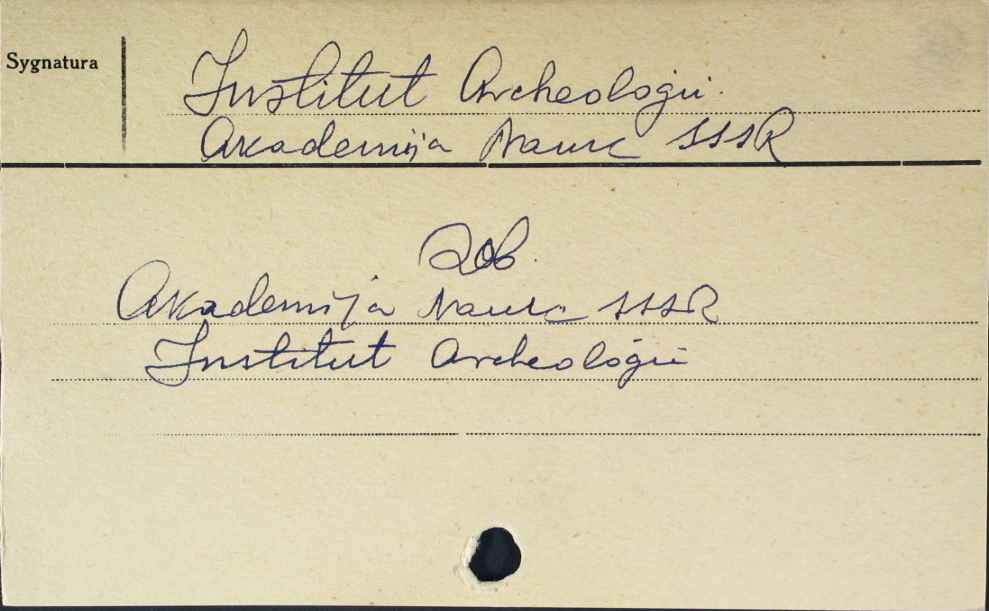 Sygnatura
Institut Archeologii.
Akademija Nauk SSSR
Zob.
Akademija Nauk SSSR
Institut Archeologii